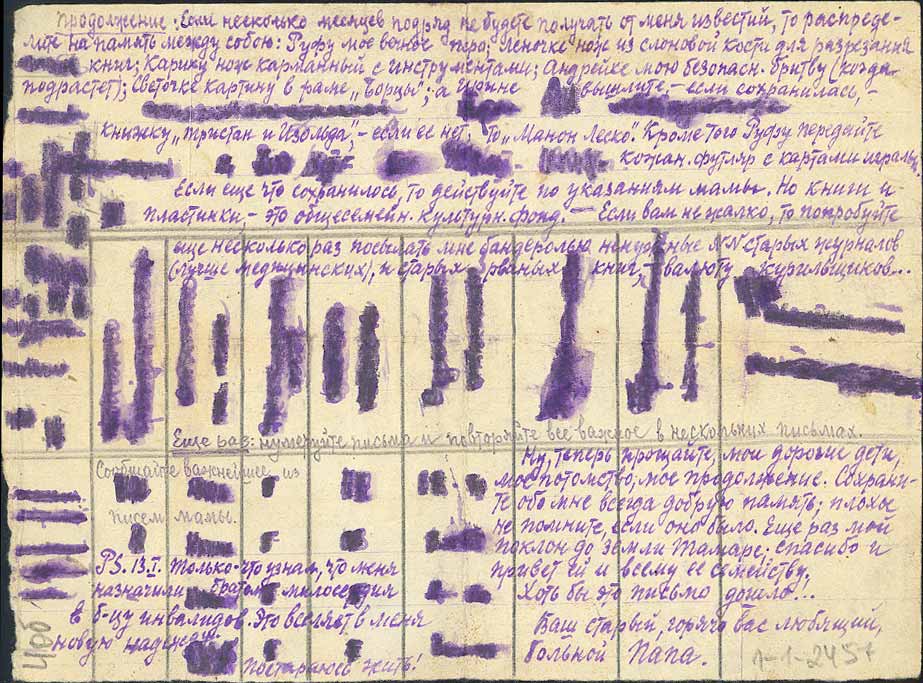 Продолжение: Если несколько месяцев подряд не будете получать от меня известий, то распреде-
лите на память между собою: Руфу мое вечное перо; Леночке нож из слоновой кости для разрезания
книг; Карику нож карманный с инструментами; Андрейке мою безопасн. бритву (когда
подрастет); Светочке картину в раме „Борцы"; а вышлите, – если сохранилась, –
книжку „Тристан и Изольда", – если ее нет, то „Манон Леско". Кроме того Руфу передайте
кожан. футляр с картами играль.
Если еще что сохранилось, то действуйте по указаниям мамы. Но книги и
пластинки – это общесемейн. культурн. фонд. – Если вам не жалко, то попробуйте
еще несколько раз посылать мне бандеролью ненужные NN старых журналов
(лучше медицинских), и старых рваных книг, – валюту курильщиков...
Еще раз: нумеруйте письма и повторяйте все важное в нескольких письмах.
Сообщайте важнейшее из
писем мамы.
Ну, теперь прощайте, мои дорогие дети,
мое потомство, мое продолжение. Сохрани-
те обо мне всегда добрую память; плохое
не помните, если оно было. Еще раз мой
поклон до земли Тамаре; спасибо и
привет ей и всему ее семейству.
Хоть бы это письмо дошло...
Ваш старый, горячо вас любящий,
больной Папа.
PS. 13.I. Только-что узнал, что меня
назначили братом милосердия
в б-цу инвалидов. Это вселяет в меня
новую надежду.
Постараюсь жить!
406
1-1-2457